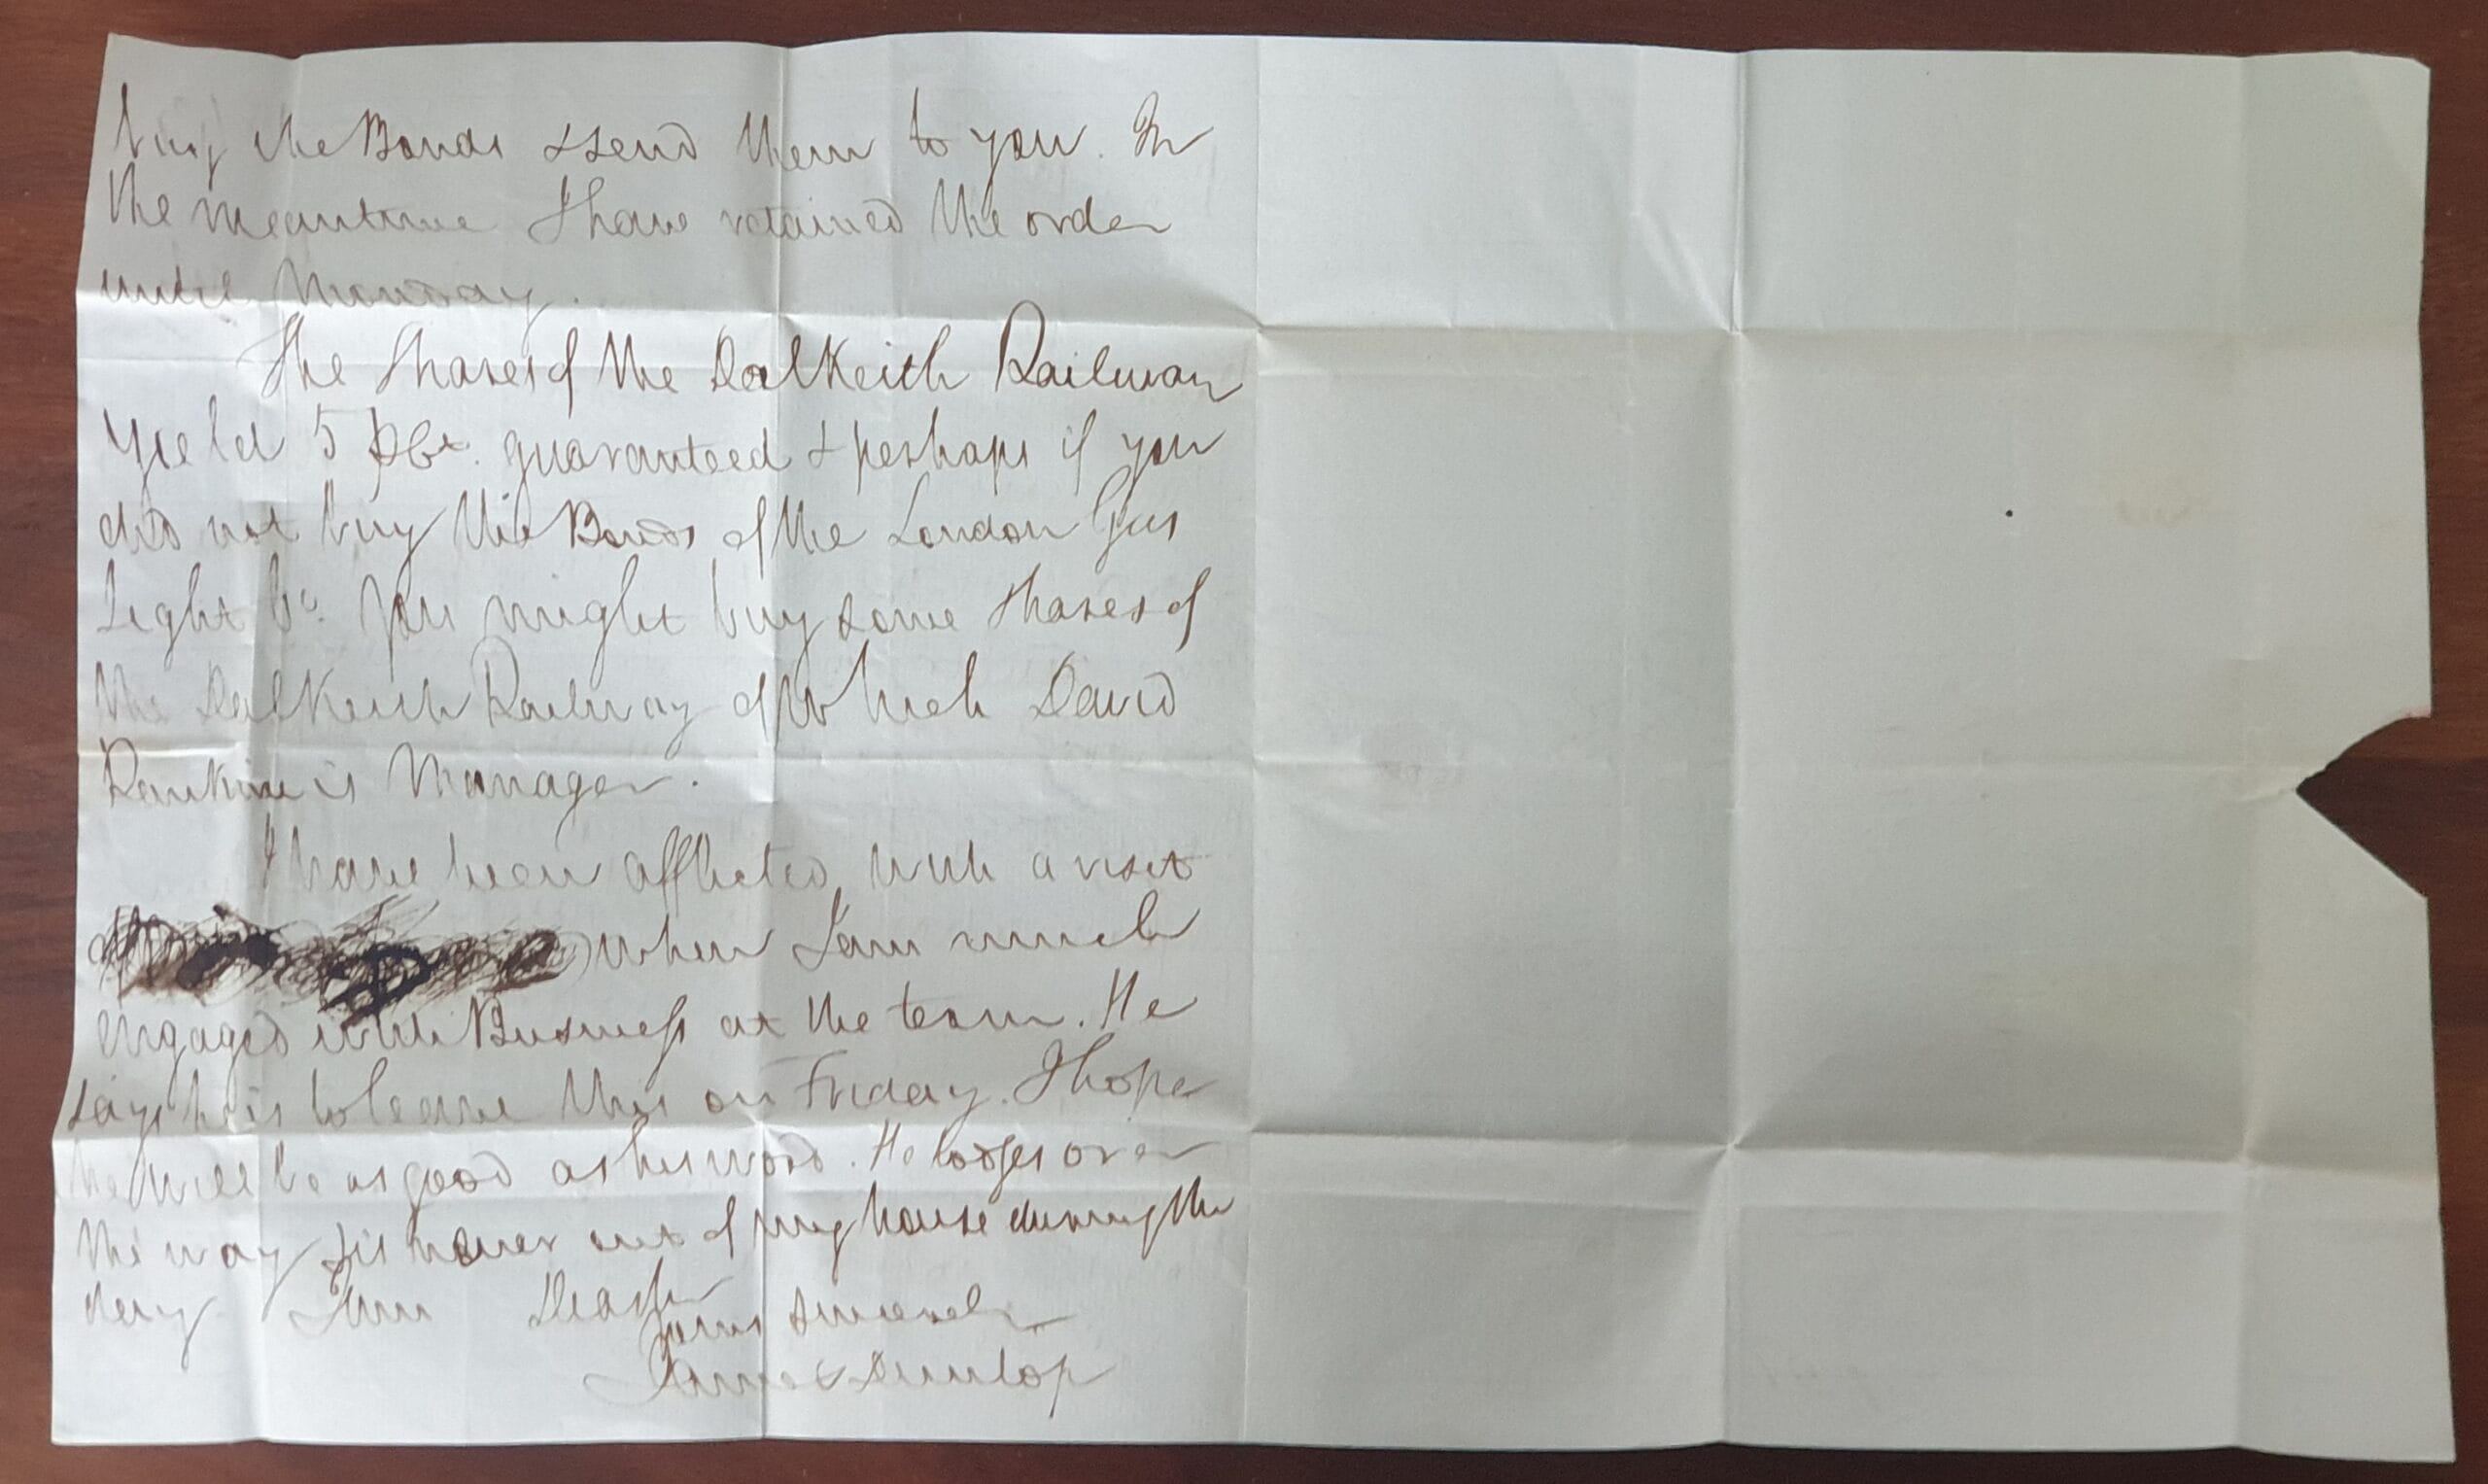 buy the Bonds & send them to you. In
the meantime I have retained the order
until Monday.
The Shares of the Dalkeith Railway
yield 5 pCt. guaranteed & perhaps if you
did not buy the Bonds of the London Gas
Light Co. you might buy some Shares of
the Dalkeith Railway of which David
Rankine is Manager.
I have been afflicted with a visit
of when I am much
engaged with Business at the term. He
says he is to leave this on Friday. I hope
he will be as good as his word. He lodges over
the way & is never out of my house during the
day. I am Dear Sir
Yours sincerely
James Dunlop